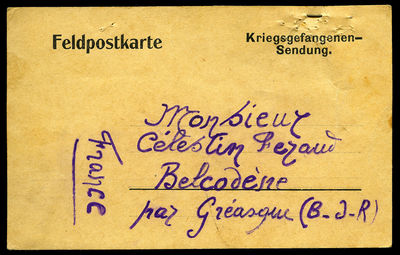 Feldpostkarte
Kriegsgefangenen-
Sendung.
Monsieur
Célestin Fezaud
Belcodène
par Gréasque (B-d-R)
France